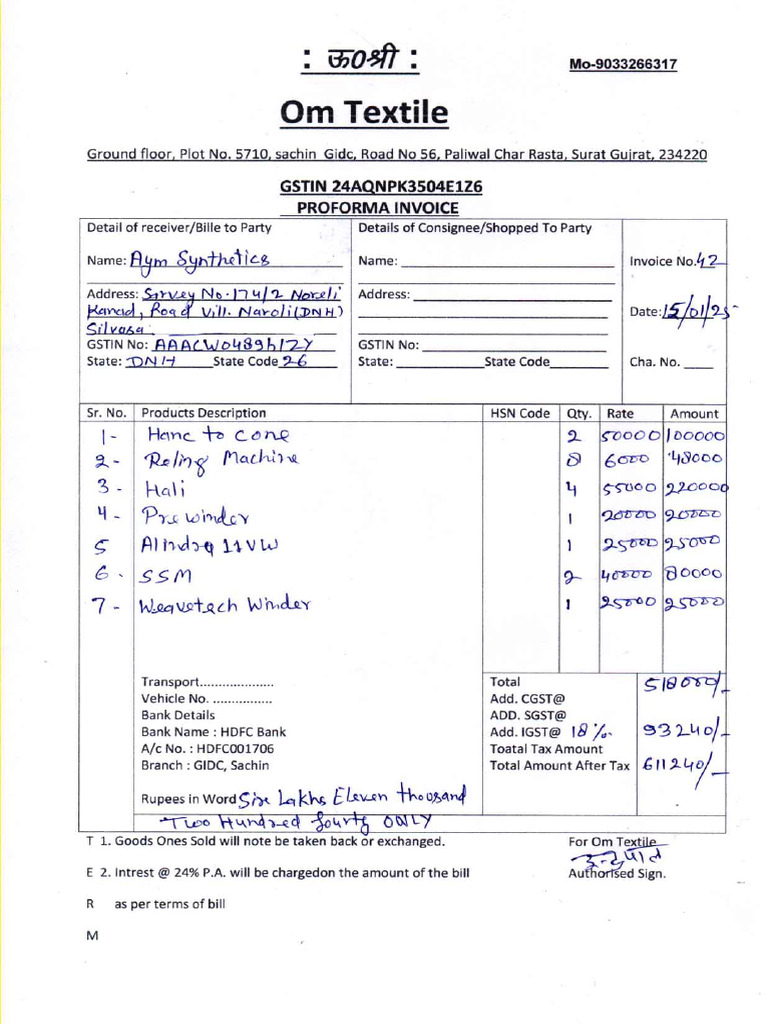 : ऊ०श्री :
Mo-9033266317
Om Textile
Ground floor, Plot No. 5710, sachin Gidc, Road No 56, Paliwal Char Rasta, Surat Gujrat, 234220
GSTIN 24AQNPK3504E1Z6
PROFORMA INVOICE
Detail of receiver/Bille to Party
Name: Aym Synthetics
Address: Sarvey No-174/2 Noroli
Kanad, Road Vill. Naroli (DNH)
Silvasa.
GSTIN No: AAACW0489h1ZY
State: DNH State Code 26
Details of Consignee/Shopped To Party
Name:
Address:
GSTIN No:
State: State Code
Invoice No. 42
Date: 15/01/25
Cha. No.
Sr. No. Products Description HSN Code Qty. Rate Amount
1- Hanc to cone 2 50000 100000
2- Roling Machine 8 6000 48000
3- Hali 4 55000 220000
4- Pre winder 1 20000 20000
5 1 25000 25000
6. SSM 2 40000 80000
7- Weavetech Winder 1 25000 25000
Transport....................
Vehicle No. ................
Bank Details
Bank Name : HDFC Bank
A/c No. : HDFC001706
Branch : GIDC, Sachin
Total 518000/-
Add. CGST@
ADD. SGST@
Add. IGST@ 18%. 93240/-
Toatal Tax Amount
Total Amount After Tax 611240/-
Rupees in Word Six Lakhs Eleven thousand
Two Hundred fourty ONLY
T 1. Goods Ones Sold will note be taken back or exchanged.
E 2. Intrest @ 24% P.A. will be chargedon the amount of the bill
R as per terms of bill
M
For Om Textile
Authorised Sign.